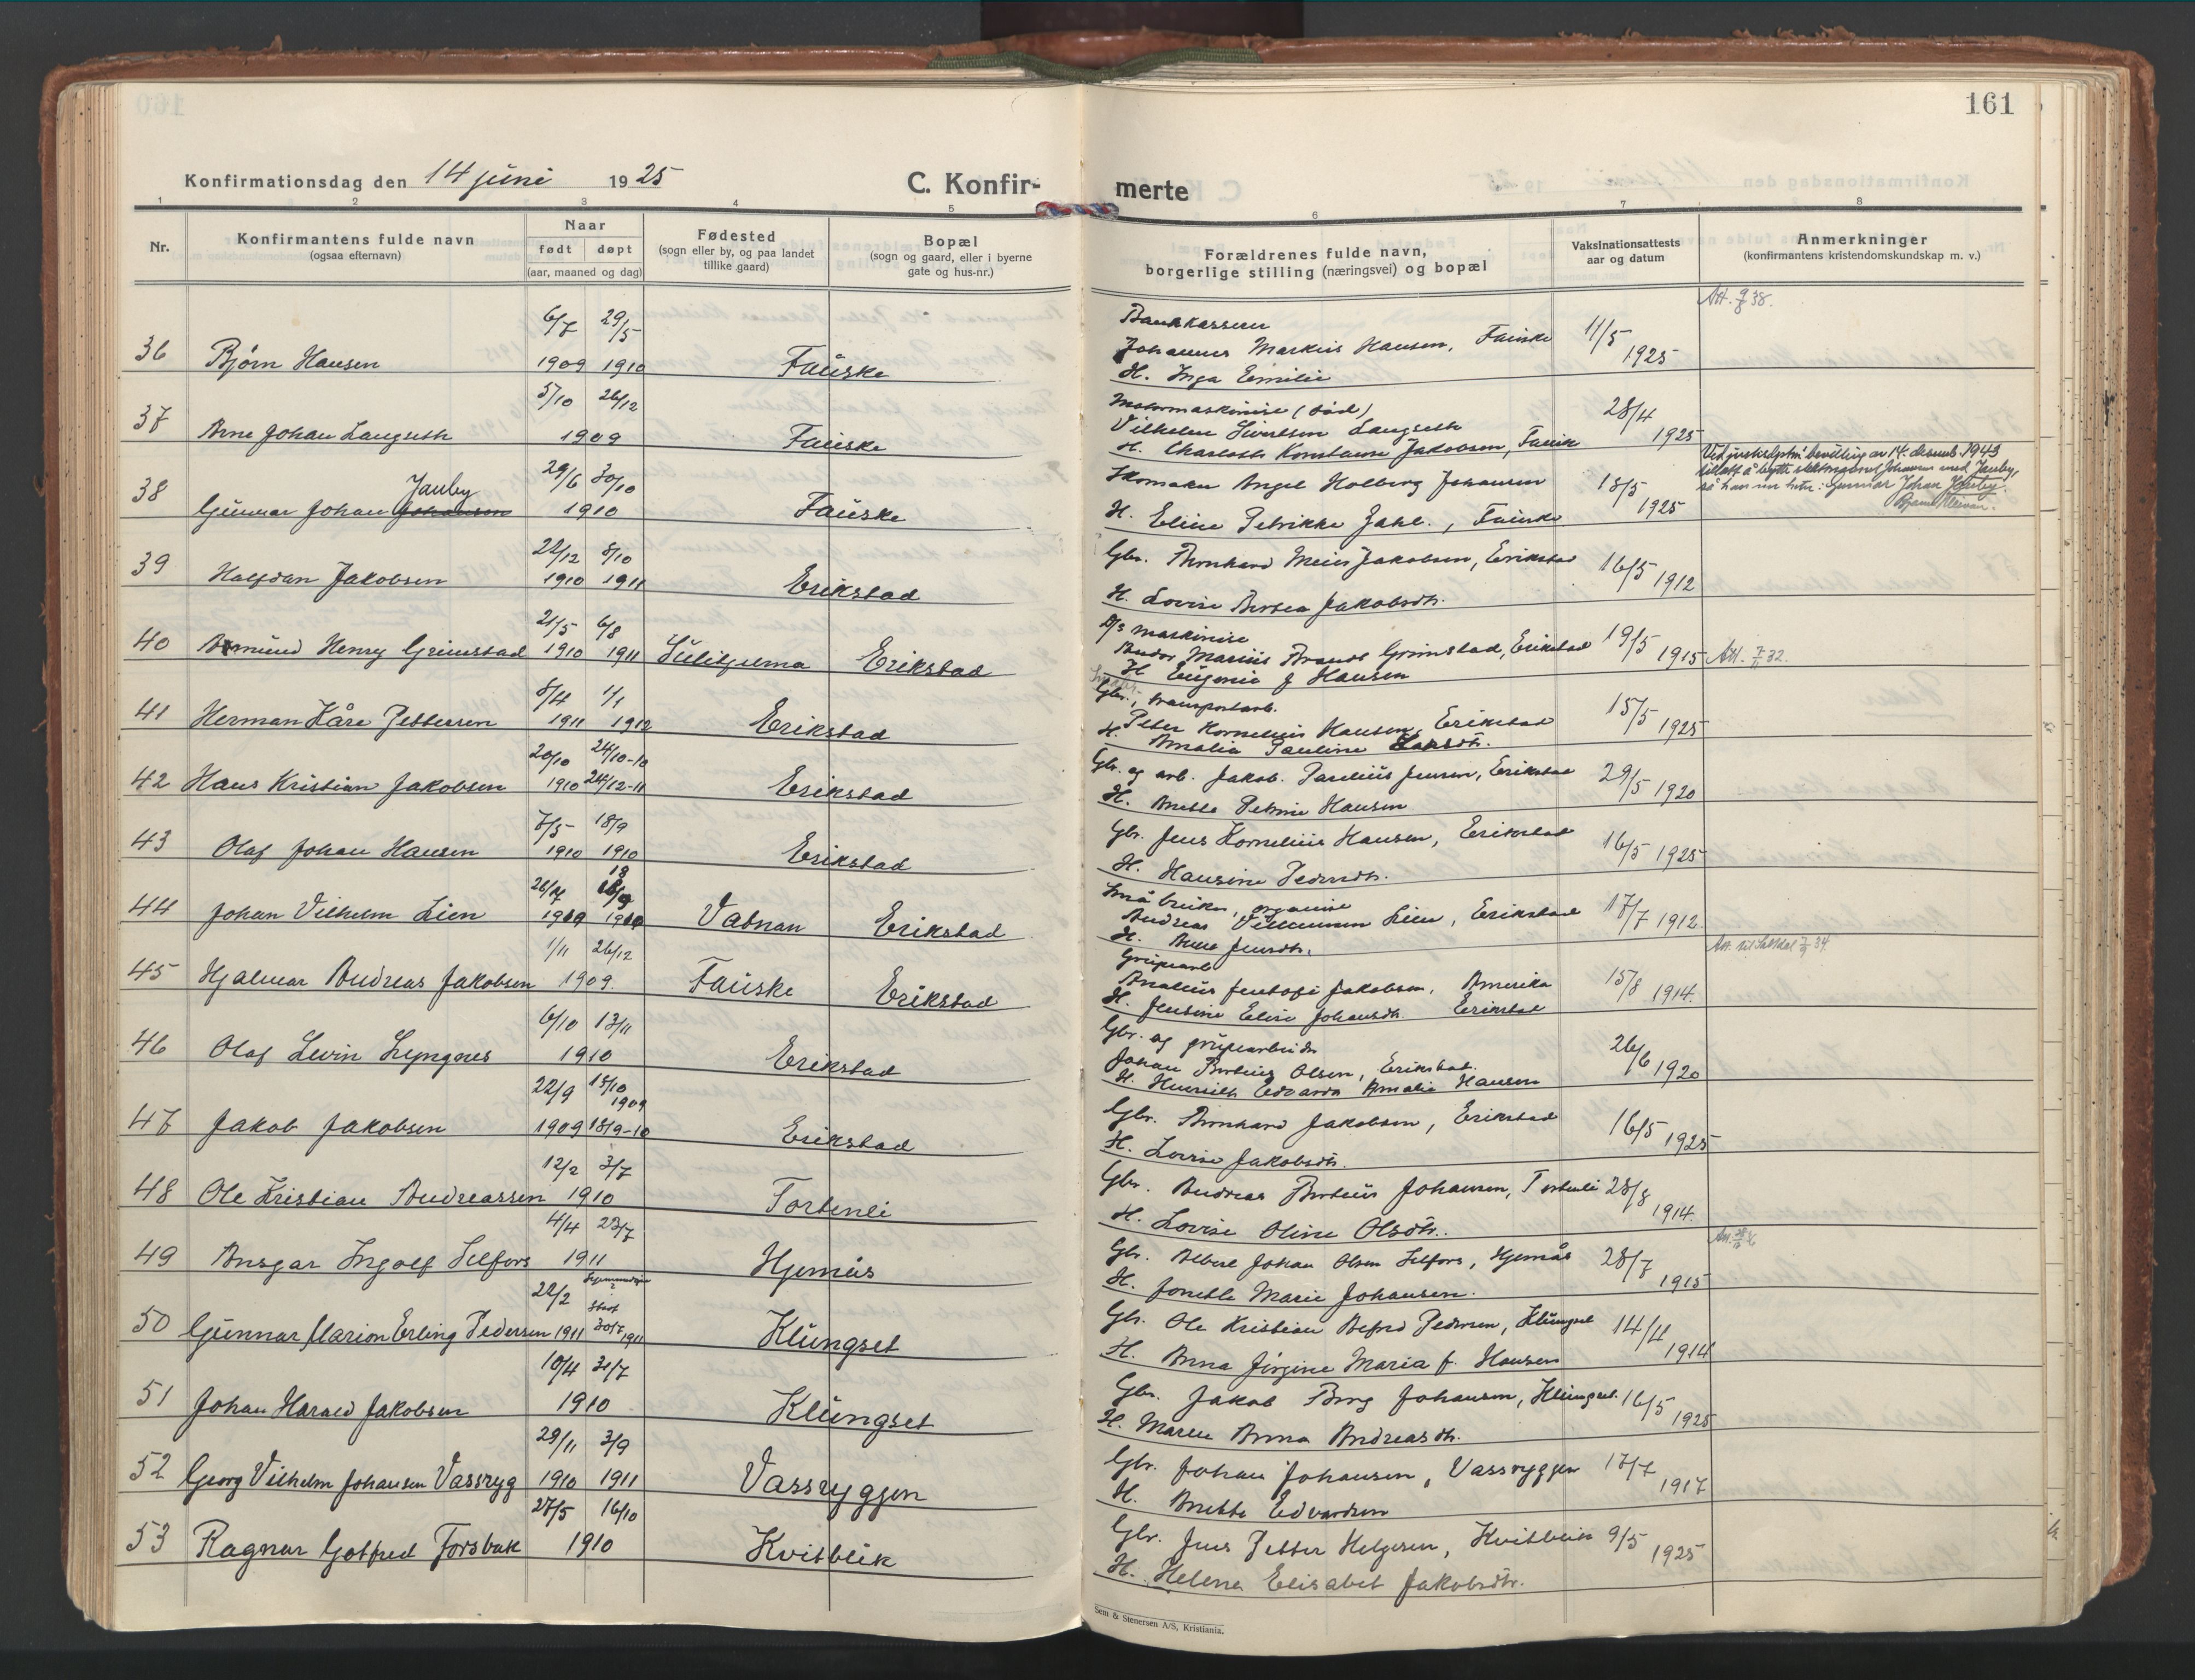 161
Konfirmationsdag den 14 juni 1925
C. Konfir-
merte
1 2 3 4 5 6 7 8
Nr.
Konfirmantens fulde navn
(ogsaa efternavn)
Naar
født døpt
(aar, maaned og dag)
Fødested
(sogn eller by, og paa landet
tillike gaard)
Bopæl
(sogn og gaard, eller i byerne
gate og hus-nr.)
Forældrenes fulde navn,
borgerlige stilling (næringsvei) og bopæl
Vaksinationsattests
aar og datum
Anmerkninger
(konfirmantens kristendomskundskap m. v.)
6/7 29/5
36 Bjørn Hansen 1909 1910 Fauske
Bankkasserer
Johannes Markus Hansen, Fauske 11/5 1925
H. Inga Emilie
Att. 9/ 38.
5/10 26/12
37 Arne Johan Langseth 1909 Fauske
Motormaskinist (død)
Vilhelm Sivertsen Langseth 28/4 1925
H. Charlotte Konstanse Jakobsen, Fauske
29/6 30/10
Jauby
38 Gunnar Johan Johansen 1910 Fauske
Skomaker Angel Holberg Johansen 18/5 1925
H. Eline Petrikke Jahl., Fauske
Ved justisdptn. bevilling av 14. desemb. 1943
tillatt å bytte slektsnavnet Johansen med Jauby,
så han nu heter: Gunnar Johan Jauby.
22/12 8/10
39 Halfdan Jakobsen 1910 1911 Erikstad
Gbr. Bernhard Meier Jakobsen, Erikstad 16/5 1912
H. Lovise Bertea Jakobsdtr.
21/5 6/8
40 Armund Henry Grimstad 1910 1911 Sulitjelma Erikstad
D/S maskinist
Peder Marius Brandt Grimstad, Erikstad 19/5 1915
H. Eugenie J Hansen
Att. 7/ 32.
8/4 1/1
41 Herman Kåre Pettersen 1911 1912 Erikstad
Gbr., transportarb.
Peter Kornelius Hansen, Erikstad 15/5 1925
H. Amalia Pauline Larsdtr.
20/10 24/10-10
42 Hans Kristian Jakobsen 1910 24/12-11 Erikstad
Gbr. og arb. Jakob Parelius Jensen, Erikstad 29/5 1920
H. Anette Petrine Hansen
7/5 18/9
43 Olaf Johan Hansen 1910 1910 Erikstad
Gbr. Jens Kornelius Hansen, Erikstad 16/5 1925
H. Hansine Pedersdtr.
26/7 18/9
44 Johan Vilhelm Lien 1910 1910 Vatnan Erikstad
Småbruker, organist
Andreas Villumsen Lien, Erikstad 17/7 1912
H. Anne Jensdtr.
1/11 26/12
45 Hjalmar Andreas Jakobsen 1909. Fauske Erikstad
Grubearb
Analius Jentofi Jakobsen, Amerika 15/8 1914.
H. Jensine Elise Johansdtr. Erikstad
Att. til Saltdal 7/ 34
6/10 13/11
46 Olaf Levin Lyngnes 1910 Erikstad
Gbr. og grubearbeider
Johan Bertheus Olsen, Erikstad. 26/6 1920
H. Henriette Edvarda Amalia Hansen
22/9 15/10 1909
47 Jakob Jakobsen 1909 18/9-10 Erikstad
Gbr. Bernhard Jakobsen, Erikstad 16/5 1925
H. Lovise Jakobsdtr.
12/2 3/7
48 Ole Kristian Andreassen 1910 Tortenli
Gbr. Andreas Berteus Johansen, Tortenli 28/8 1914.
H. Lovise Oline Olsdtr.
4/4 23/7
49 Ansgar Ingolf Selfors 1911 Hjemås
Gbr. Albert Johan Olsen Selfors, Hjemås 28/7 1915
H. Jonette Marie Johansen.
22/2 Hjemmedøpt
Stadf 30/7
50 Gunnar Marion Erling Pedersen 1911 1911 Klungset
Gbr. Ole Kristian Alfred Pedersen, Klungset 14/11 1914
H. Anna Jørgine Maria f. Hansen
10/4 31/7
51 Johan Harald Jakobsen 1910 Klungset
Gbr. Jakob Berg Johansen, Klungset. 16/5 1925
H. Maren Anna Andreasdtr.
29/11 3/9
52 Georg Vilhelm Johansen Vassryg 1910 1911 Vassryggen
Gbr. Johan Johansen, Vassryggen 17/7 1917
H. Anette Edvardsen
27/5 16/10
53 Ragnar Gotfred Forsbak 1910 Kvitblik
Gbr. Jens Petter Helgesen, Kvitblik 9/5 1925
H. Helene Elisabet Jakobsdtr.
Sem & Stenersen A/S, Kristiania.